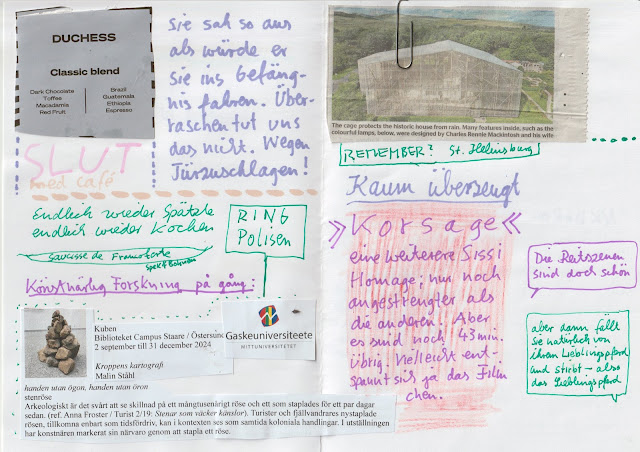 DUCHESS
Classic blend
Dark Chocolate
Toffee
Macadamia
Red Fruit
Brazil
Guatemala
Ethiopia
Espresso
sie sah so aus
als würde er
sie ins Gefäng-
nis fahren. Über-
raschen tut uns
das nicht. Wegen
Türzuschlagen!
SLUT
med café
Endlich wieder Spätzle
endlich wieder Kochen
Saucisse de Francforte
Speck & Bohnen
RING
Polisen
Konstnärlig Forskning på gång:
Kuben
Biblioteket Campus Staare / Östersund
2 september till 31 december 2024
Kroppens kartografi
Malin Ståhl
Gaskeuniversiteete
MITTUNIVERSITETET
handen utan ögon, handen utan öron
stenröse
Arkeologiskt är det svårt att se skillnad på ett mångtusenårigt röse och ett som staplades för ett par dagar
sedan. (ref. Anna Froster / Turist 2/19: Stenar som väcker känslor). Turister och fjällvandrares nystaplade
rösen, tillkomna enbart som tidsfördriv, kan i kontexten ses som samtida koloniala handlingar. I utställningen
har konstnären markerat sin närvaro genom att stapla ett röse.
The cage protects the historic house from rain. Many features inside, such as the
colourful lamps, below, were designed by Charles Rennie Mackintosh and his wife
REMEMBER? St. Helensburg
Kaum überzeugt
» Korsage «
eine weiterere Sissi
Homage; nur noch
angestrengter als
die anderen. Aber
es sind noch 43 min.
übrig. Vielleucht ent-
spannt sich ja das Film
chen.
Die Reitszenen
sind doch schön
aber dann fällt
sie natürlich von
ihrem Lieblingspferd
und stirbt – also
das Lieblingspferd